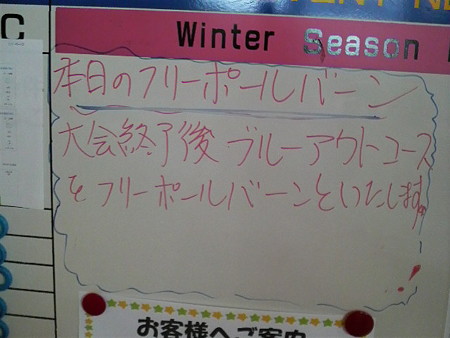 C
Winter Season
本日のフリーポールバーン
大会終了後 ブルーアウトコース
を フリーポールバーンといたします。
お客様へご案内